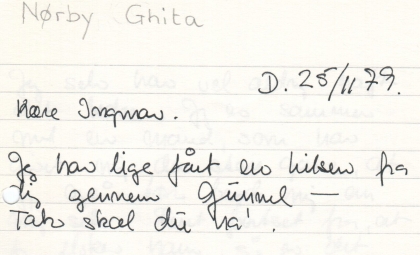 Nørby Ghita
D. 25/11 79.
Kære Ingmar.
Jeg har lige fået en hilsen fra
dig gennem Gunnel —
Tak skal du ha'.